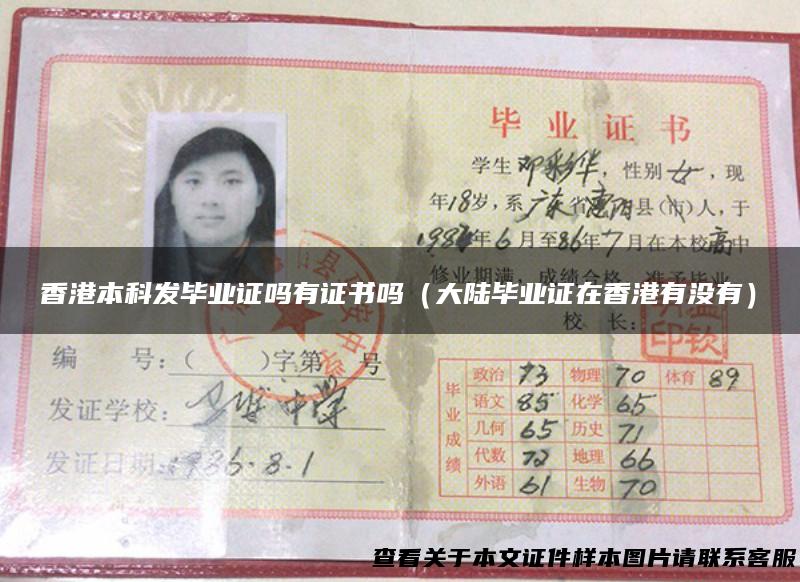 毕业证书
学生邓彩华，性别女，现
年18岁，系广东省惠阳县(市)人，于
年6月至86年7月在本校高中
修业期满，成绩合格，准予毕业
香港本科发毕业证吗有证书吗（大陆毕业证在香港有没有）
校 长：
编 号：（ ）字第 号
发证学校：
中学
发证日期：1986.8.1
毕业成绩
政治 73 物理 70 体育 89
语文 85 化学 65
几何 65 历史 71
代数 72 地理 66
外语 61 生物 70
查看关于本文证件样本图片请联系客服